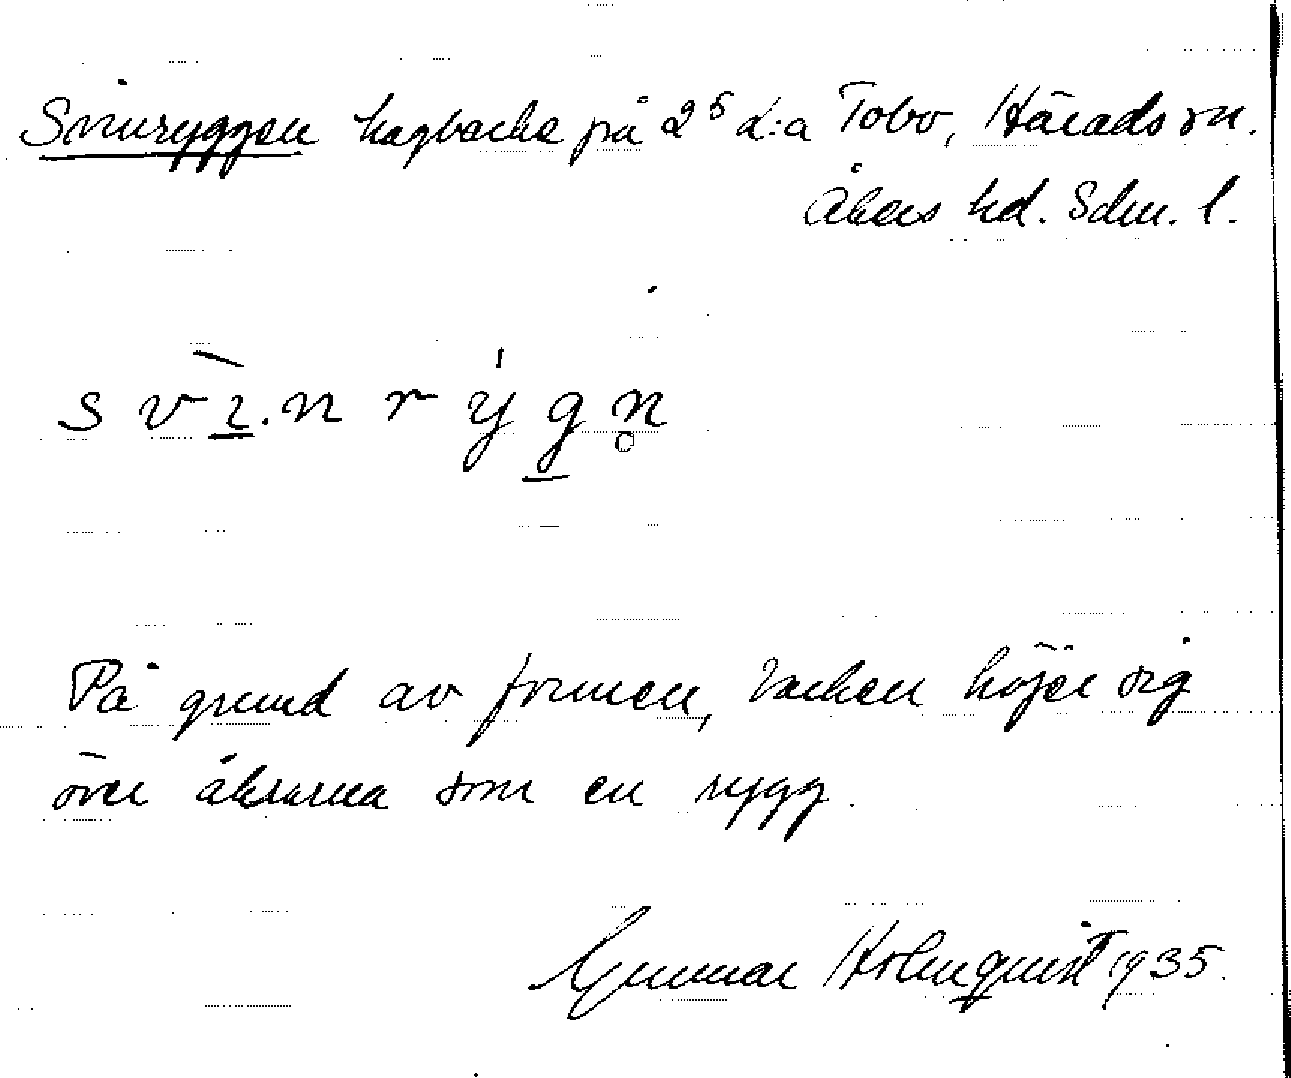 Svinryggen hagbacke på 2⁵ d:a Tobo, Härads sn.
Åkers hd. Sdm. l.
s v ì. n r ý g n̥
På grund av formen, backen höjer sig
över åkrarna som en rygg.
Gunnar Holmquist 1935.